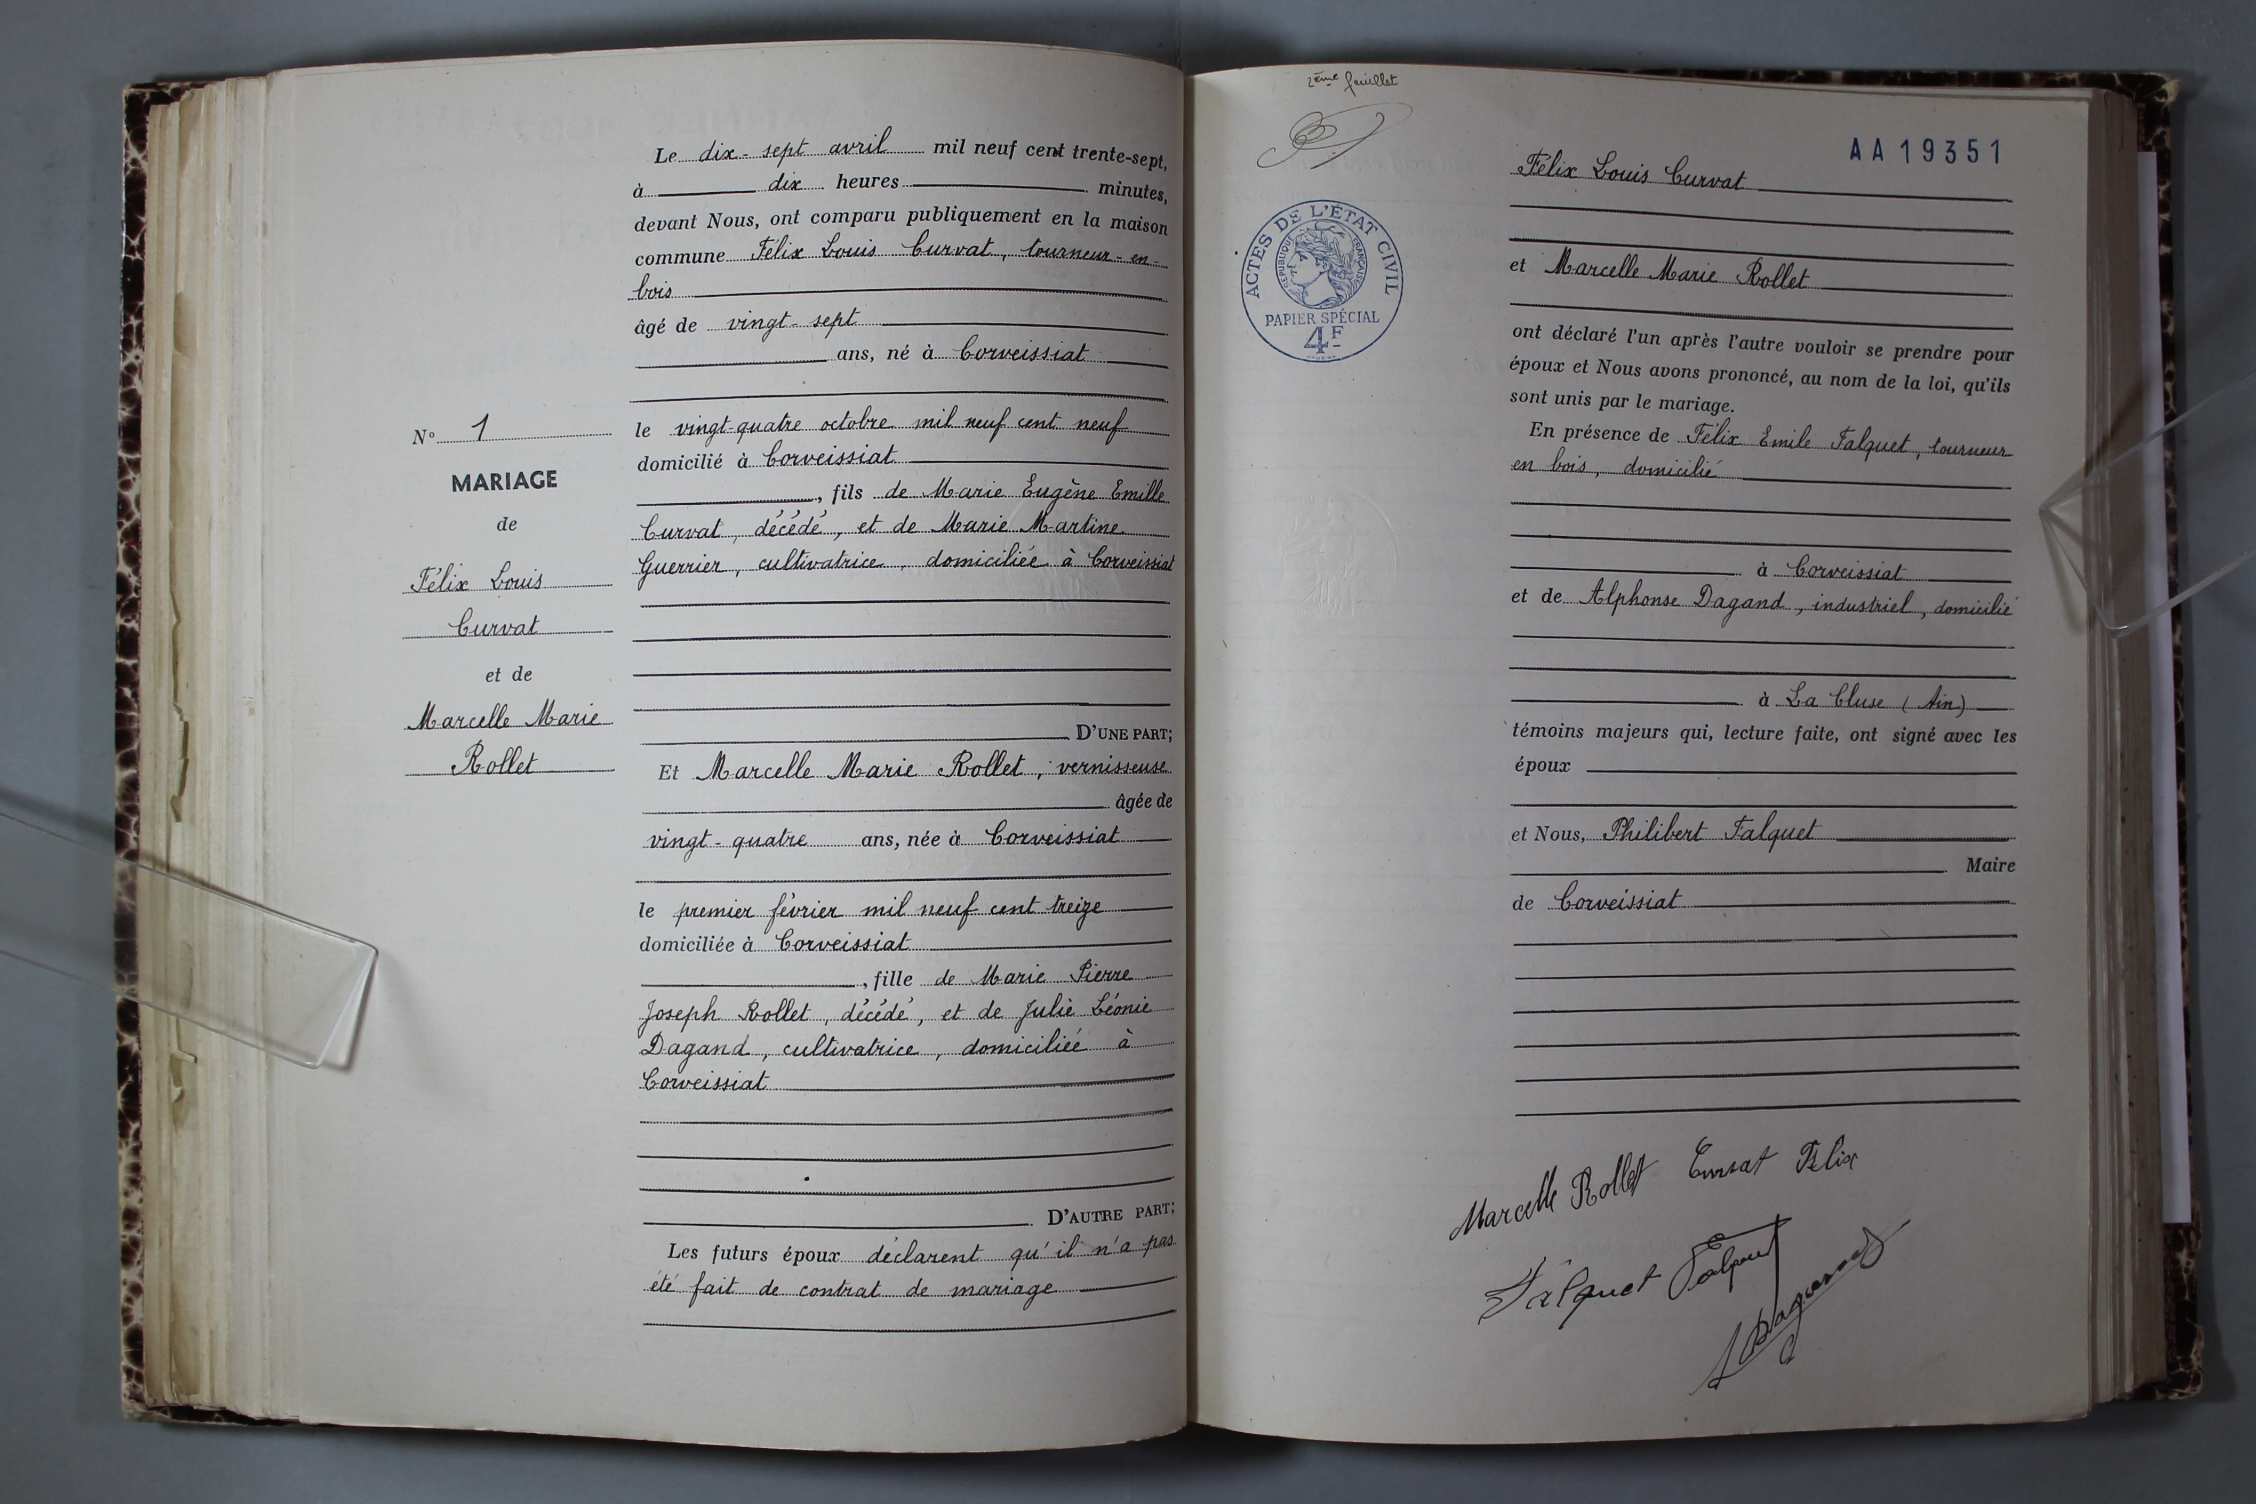 Le dix-sept avril mil neuf cent trente-sept,
à dix heures minutes,
devant Nous, ont comparu publiquement en la maison
commune Félix Louis Curvat, tourneur-en-
bois
âgé de vingt-sept
ans, né à Corveissiat
le vingt-quatre octobre mil neuf cent neuf
domicilié à Corveissiat
, fils de Marie Eugène Emille
Curvat, décédé, et de Marie Martine
Guerrier, cultivatrice, domiciliée à Corveissiat
D'UNE PART;
Et Marcelle Marie Rollet, vernisseuse
âgée de
vingt-quatre ans, née à Corveissiat
le premier février mil neuf cent treize
domiciliée à Corveissiat
, fille de Marie Pierre
Joseph Rollet, décédé, et de Julie Léonie
Dagand, cultivatrice, domiciliée à
Corveissiat
D'AUTRE PART;
Les futurs époux déclarent qu'il n'a pas
été fait de contrat de mariage
No 1
MARIAGE
de
Félix Louis
Curvat
et de
Marcelle Marie
Rollet
2ème feuillet
AA19351
ACTES DE L'ÉTAT CIVIL
RÉPUBLIQUE FRANÇAISE
PAPIER SPÉCIAL
4F
Félix Louis Curvat
et Marcelle Marie Rollet
ont déclaré l'un après l'autre vouloir se prendre pour
époux et Nous avons prononcé, au nom de la loi, qu'ils
sont unis par le mariage.
En présence de Félix Emile Falquet, tourneur
en bois, domicilié
à Corveissiat
et de Alphonse Dagand, industriel, domicilié
à La Cluse (Ain)
témoins majeurs qui, lecture faite, ont signé avec les
époux
et Nous, Philibert Falquet
Maire
de Corveissiat
Marcelle Rollet Curvat Félix
Falquet Falquet